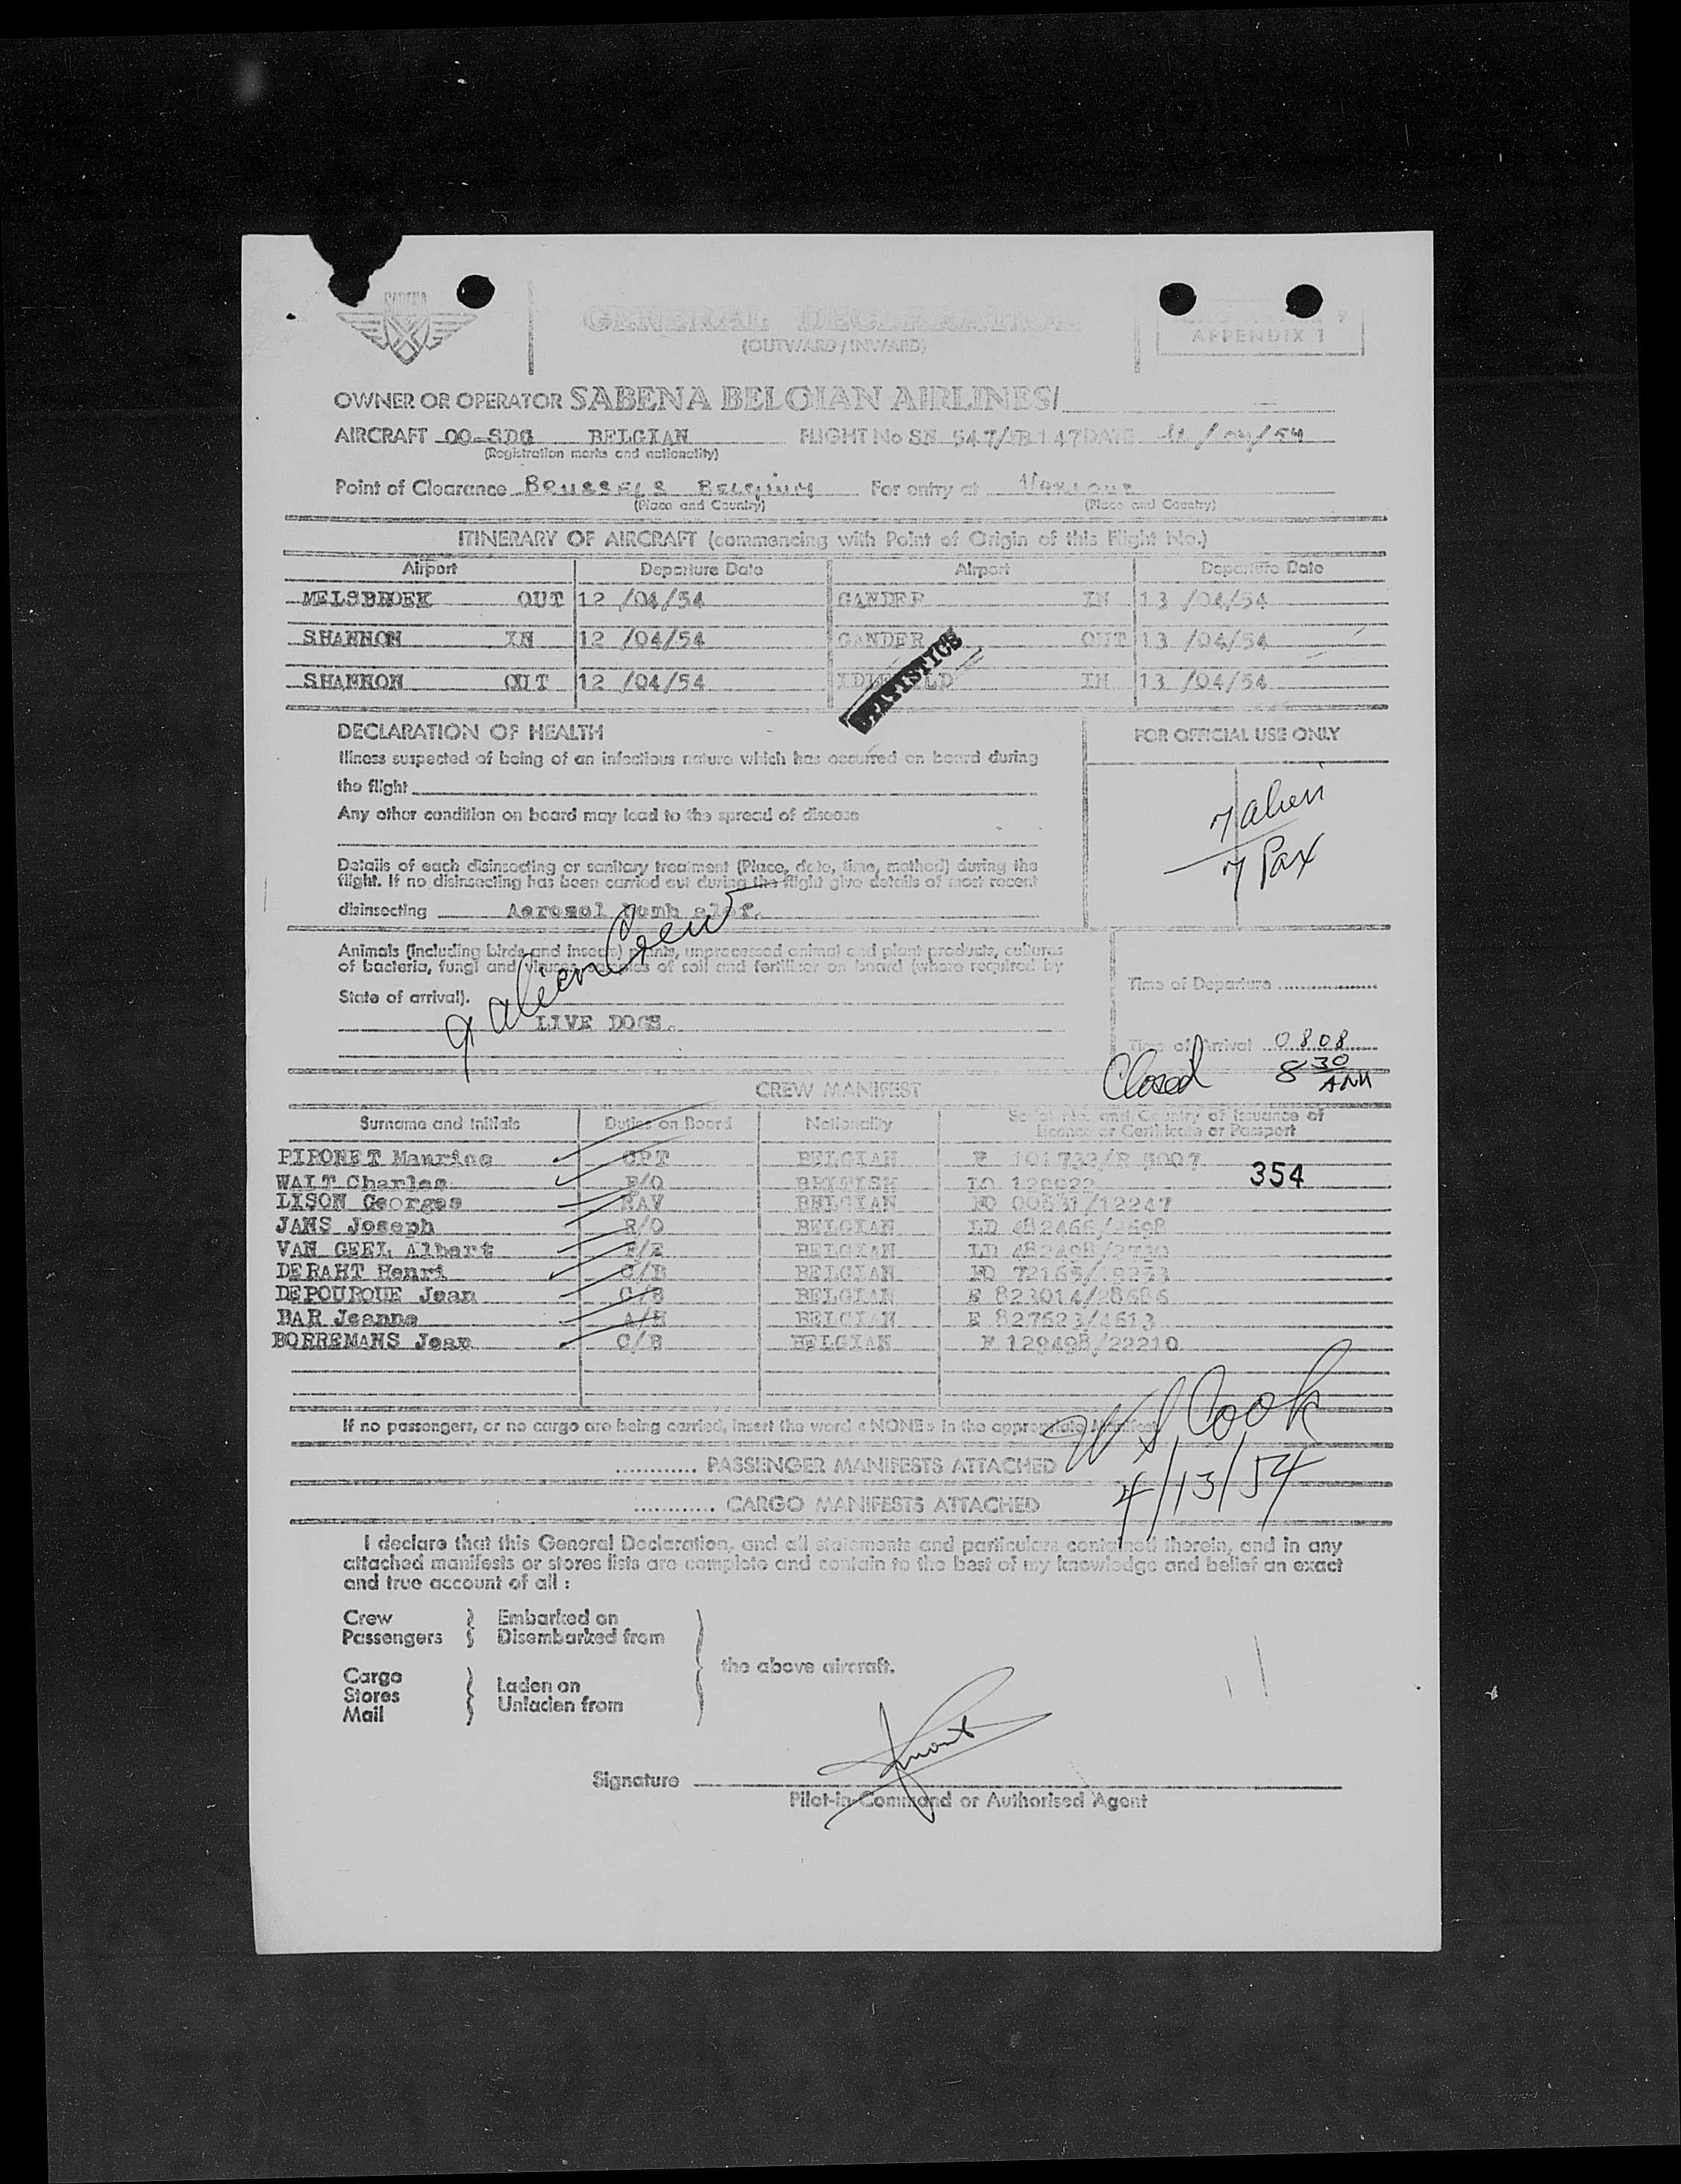 SABENA
GENERAL DECLARATION
(OUTWARD / INWARD)
APPENDIX 1
OWNER OR OPERATOR SABENA BELGIAN AIRLINES/
AIRCRAFT OO-SDG BELGIAN FLIGHT No SN 547/ 147 DATE /04/54
(Registration marks and nationality)
Point of Clearance BRUSSELS BELGIUM For entry at
(Place and Country) (Place and Country)
ITINERARY OF AIRCRAFT (commencing with Point of Origin of this Flight No.)
Airport Departure Date Airport Departure Date
MELSBROEK OUT 12 /04/54 GANDER IN 13 /04/54
SHANNON IN 12 /04/54 GANDER OUT 13 /04/54
SHANNON OUT 12 /04/54 IDLEWILD IN 13 /04/54
STATISTICS
DECLARATION OF HEALTH FOR OFFICIAL USE ONLY
Illness suspected of being of an infectious nature which has occurred on board during
the flight
Any other condition on board may lead to the spread of disease
7 alien
7 Pax
Details of each disinsecting or sanitary treatment (Place, date, time, method) during the
flight. If no disinsecting has been carried out during the flight give details of most recent
disinsecting Aerosol bomb
9 alien Crew
Animals (including birds and insects) plants, unprocessed animal and plant products, cultures
of bacteria, fungi and viruses, samples of soil and fertiliser on board (where required by
State of arrival).
LIVE DOGS.
Time of Departure
Time of Arrival 0808
Closed 8 30 AM
CREW MANIFEST
Surname and Initials Duties on Board Nationality Serial No. and Country of Issuance of
Licence or Certificate or Passport
PIRONET Maurice CPT BELGIAN F 101732/R 5007
354
WALT Charles F/O BRITISH LO
LISON Georges NAV BELGIAN /12247
JANS Joseph R/O BELGIAN LD 482466/2698
VAN GEEL Albert F/E BELGIAN LD
DERAHT Henri C/B BELGIAN
DEPOURQUE Jean C/S BELGIAN E 823014/28686
BAR Jeanne A/H BELGIAN E 827623/4613
BORREMANS Jean C/B BELGIAN F 129498/22210
If no passengers, or no cargo are being carried, insert the word « NONE » in the appropriate Manifest
W S Cook
4/13/54
............ PASSENGER MANIFESTS ATTACHED
............ CARGO MANIFESTS ATTACHED
I declare that this General Declaration, and all statements and particulars contained therein, and in any
attached manifests or stores lists are complete and contain to the best of my knowledge and belief an exact
and true account of all :
Crew Embarked on
Passengers Disembarked from
the above aircraft.
Cargo
Stores Laden on
Mail Unladen from
Signature
Pilot-in-Command or Authorised Agent